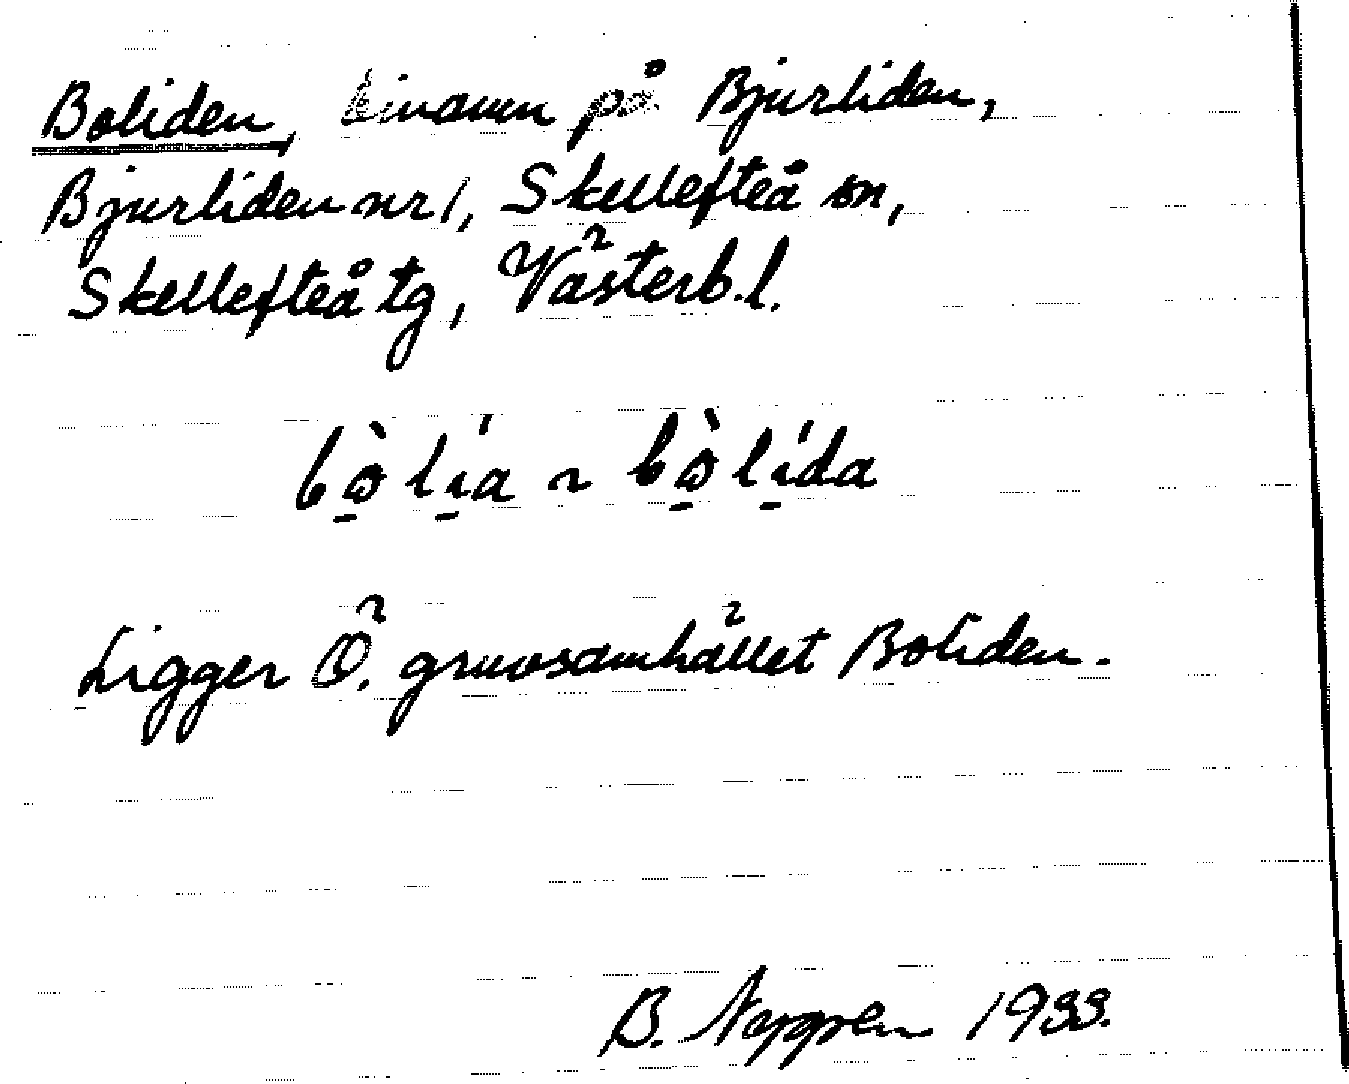 Boliden, binamn på Bjurliden,
Bjurliden nr 1, Skellefteå sn,
Skellefteå tg, Västerb. l.
bò̱lı̱́a ~ bò̱lı̱́da
Ligger Ö. gruvsamhället Boliden.
B. 1933.